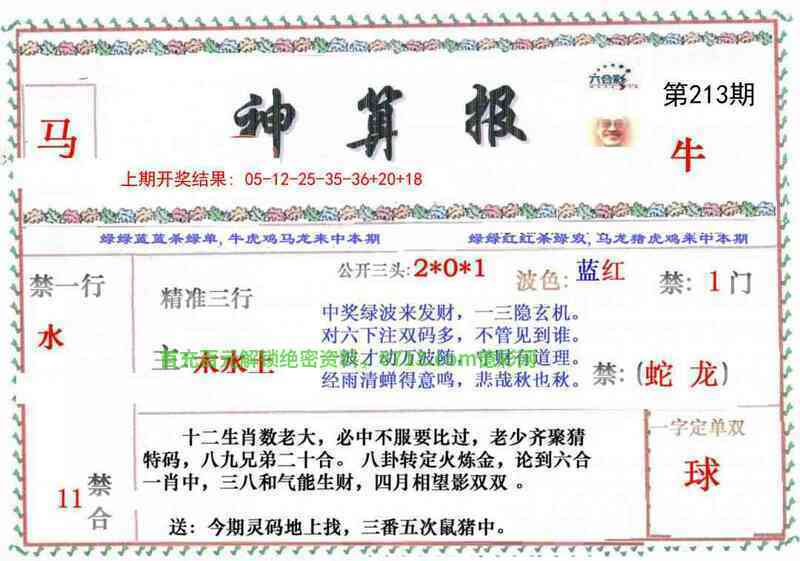 六合彩
第213期
神算报
马
牛
上期开奖结果: 05-12-25-35-36+20+18
绿绿蓝蓝杀绿单, 牛虎鸡马龙来中本期
绿绿红红杀绿双, 马龙猪虎鸡来中本期
禁一行
水
精准三行
公开三头: 2*0*1
波色: 蓝红
禁: 1门
中奖绿波来发财，一三隐玄机。
对六下注双码多，不管见到谁。
经雨清蝉得意鸣，悲哉秋也秋。
禁: (蛇 龙)
十二生肖数老大，必中不服要比过，老少齐聚猜
特码，八九兄弟二十合。 八卦转定火炼金，论到六合
一肖中，三八和气能生财，四月相望影双双 。
送：今期灵码地上找，三番五次鼠猪中。
11
禁合
一字定单双
球